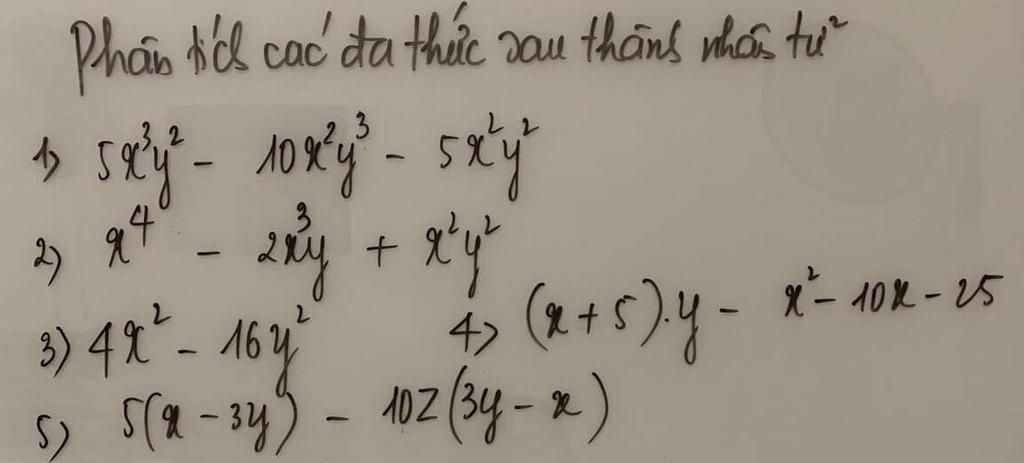 Phân tích các đa thức sau thành nhân tử
1) 5x³y² - 10x²y³ - 5x²y²
2) x⁴ - 2x³y + x²y²
3) 4x² - 16y²
4) (x + 5).y - x² - 10x - 25
5) 5(x - 3y) - 10z(3y - x)